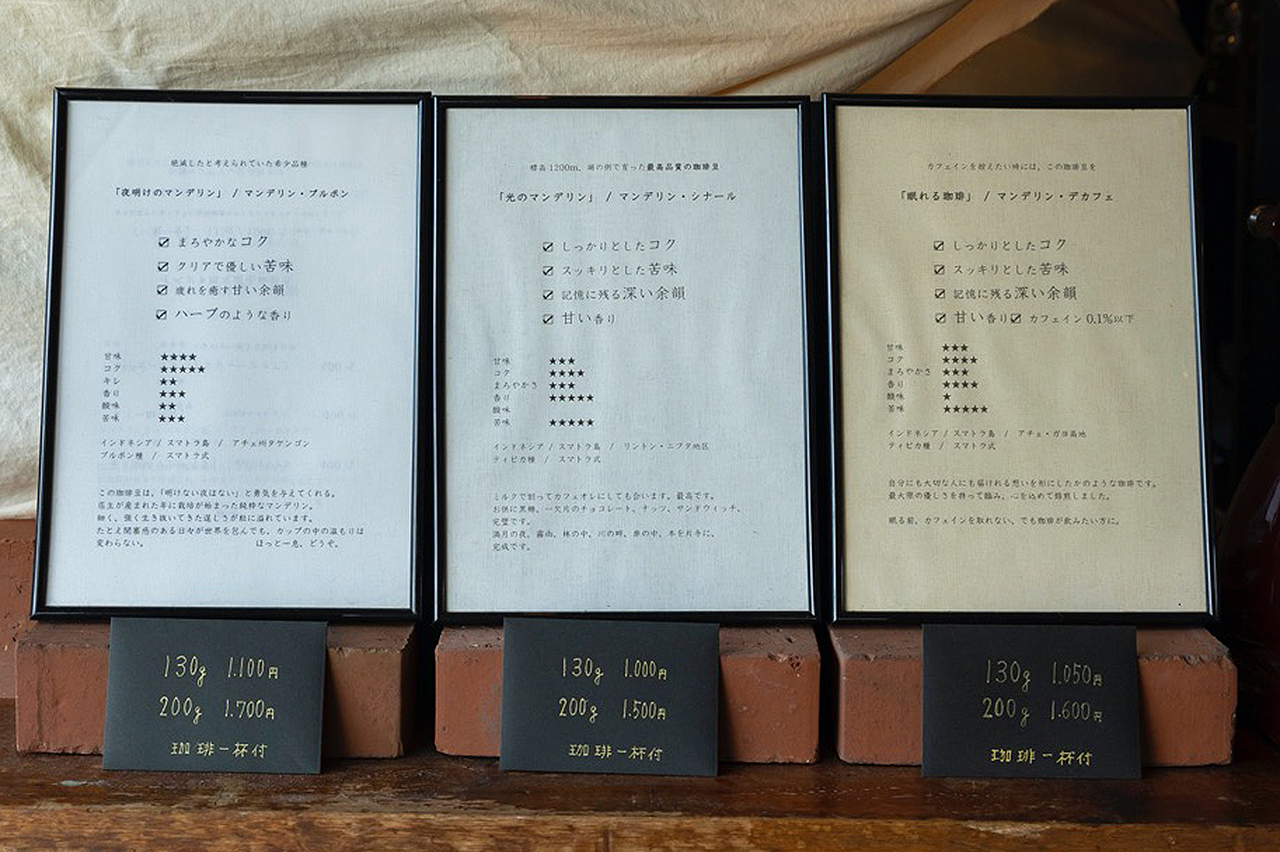 絶滅したと考えられていた希少品種
「夜明けのマンデリン」 / マンデリン・ブルボン
☑ まろやかなコク
☑ クリアで優しい苦味
☑ 疲れを癒す甘い余韻
☑ ハーブのような香り
甘味 ★★★★
コク ★★★★★
キレ ★★
香り ★★★
酸味 ★★
苦味 ★★★
インドネシア / スマトラ島 / アチェ州タケンゴン
ブルボン種 / スマトラ式
この珈琲豆は、「明けない夜はない」と勇気を与えてくれる。
店主が産まれた年に栽培が始まった純粋なマンデリン。
細く、強く生き抜いてきた逞しさが粒に溢れています。
たとえ閉塞感のある日々が世界を包んでも、カップの中の温もりは
変わらない。 ほっと一息、どうぞ。
130g 1.100円
200g 1.700円
珈琲一杯付
標高1200m、湖の側で育った最高品質の珈琲豆
「光のマンデリン」 / マンデリン・シナール
☑ しっかりとしたコク
☑ スッキリとした苦味
☑ 記憶に残る深い余韻
☑ 甘い香り
甘味 ★★★
コク ★★★★
まろやかさ ★★★
香り ★★★★★
酸味
苦味 ★★★★★
インドネシア / スマトラ島 / リントン・ニフタ地区
ティピカ種 / スマトラ式
ミルクで割ってカフェオレにしても合います。最高です。
お供に黒糖、一欠片のチョコレート、ナッツ、サンドウィッチ、
完璧です。
満月の夜、霧雨、林の中、川の畔、車の中、本を片手に。
完成です。
130g 1.000円
200g 1.500円
珈琲一杯付
カフェインを控えたい時には、この珈琲豆を
「眠れる珈琲」 / マンデリン・デカフェ
☑ しっかりとしたコク
☑ スッキリとした苦味
☑ 記憶に残る深い余韻
☑ 甘い香り☑ カフェイン0.1%以下
甘味 ★★★
コク ★★★★
まろやかさ ★★★
香り ★★★★
酸味 ★
苦味 ★★★★★
インドネシア / スマトラ島 / アチェ・ガヨ高地
ティピカ種 / スマトラ式
自分にも大切な人にも届けれる想いを形にしたかのような珈琲です。
最大限の優しさを持って臨み、心を込めて焙煎しました。
眠る前、カフェインを取れない、でも珈琲が飲みたい方に。
130g 1.050円
200g 1.600円
珈琲一杯付